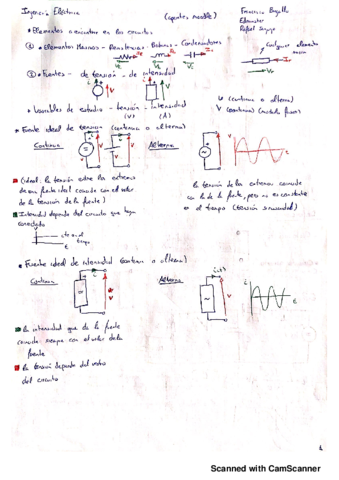 Ingeniería Eléctrica
(apuntes moodle)
Francisco
Rafael
• Elementos en los circuitos
① • Elementos Pasivos - Resistencias - Bobinas - Condensadores
Cualquier elemento
② • Fuentes - de tensión - de intensidad
• Variables de estudio - tensión - intensidad
(V) (A)
v (continua o alterna)
V (continua)
• Fuente ideal de tensión (continua o alterna)
Continua
Alterna
(ideal: la tensión entre los extremos
de una fuente ideal coincide con el valor
de la tensión de la fuente)
la tensión de los extremos coincide
con la de la fuente, pero no es constante
en el tiempo (tensión sinusoidal)
Intensidad depende del circuito que tenga
conectado
cte en el
tiempo
t
• Fuente ideal de intensidad (continua o alterna)
Continua
Alterna
i(t)
La intensidad que da la fuente
coincide siempre con el valor de la
fuente
La tensión depende del resto
del circuito
1
Scanned with CamScanner